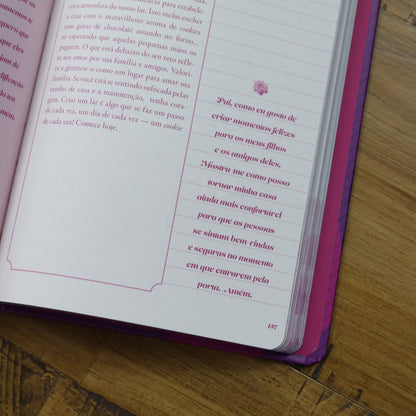 samentos te
quem que
que eles
m
dificação
da teu
mém.
a atmosfera do nosso lar. Isso inclui encher
a casa com o maravilhoso aroma de cookies
com gotas de chocolate assando no forno...
só esperando que aquelas pequenas mãos os
peguem. O que está debaixo do seu teto refle-
te seu amor por sua família e amigos. Valori-
ze e gerencie-o como um lugar para amar sua
família. Se você está se sentindo sufocada pelas
tarefas de casa e a manutenção, tenha cora-
gem. Criar um lar é algo que se faz um passo
de cada vez, um dia de cada vez — um cookie
de cada vez! Comece hoje.
Pai, como eu gosto de
criar momentos felizes
para os meus filhos
e os amigos deles.
Mostra-me como posso
tornar minha casa
ainda mais confortável
para que as pessoas
se sintam bem-vindas
e seguras no momento
em que entrarem pela
porta. Amém.
137